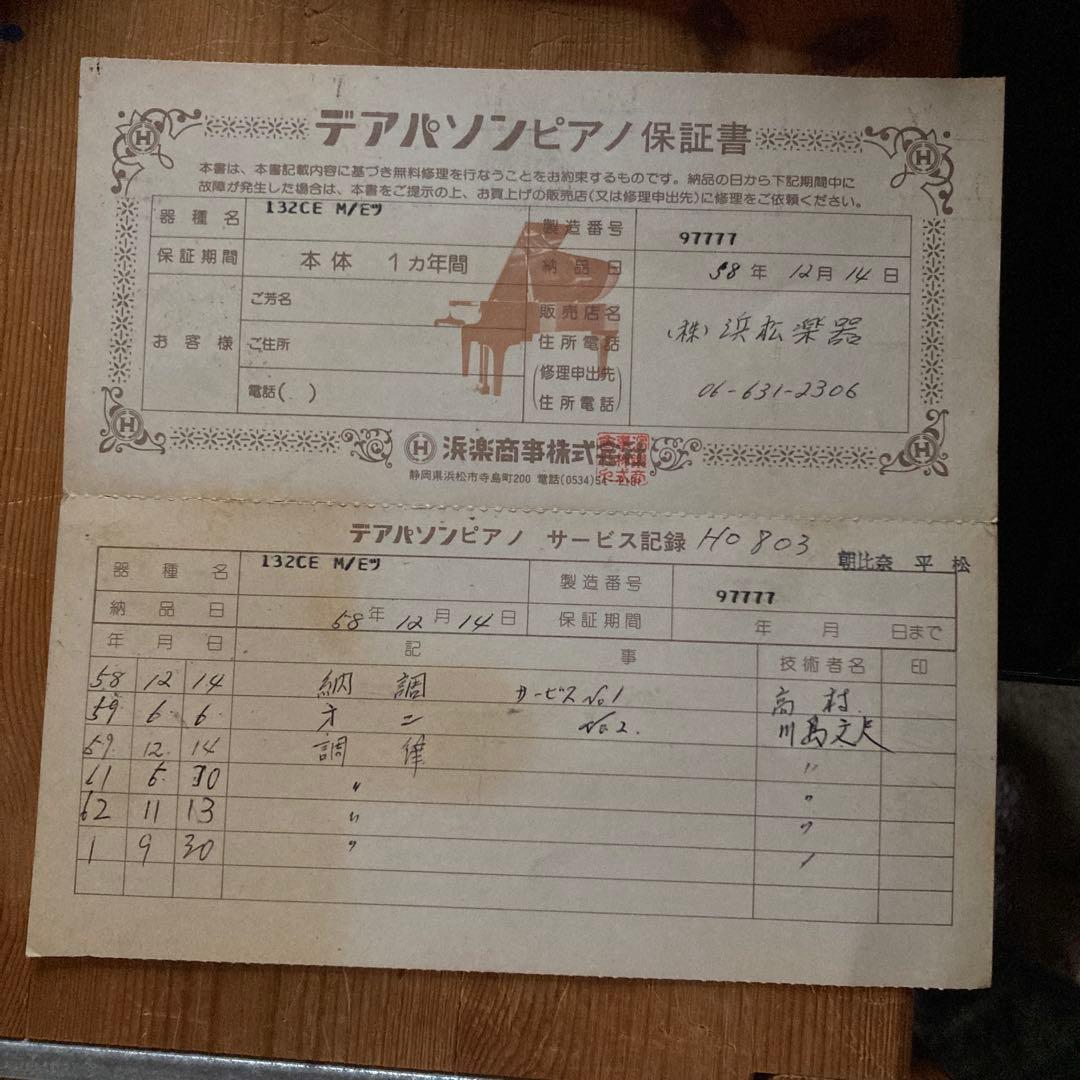 デアパソンピアノ保証書
本書は、本書記載内容に基づき無料修理を行なうことをお約束するものです。納品の日から下記期間中に
故障が発生した場合は、本書をご提示の上、お買上げの販売店(又は修理申出先)に修理をご依頼ください。
器種名 132CE M/Eツ 製造番号 97777
保証期間 本体 1カ年間 納品日 58年 12月 14日
お客様 ご芳名
ご住所
電話( )
販売店名
住所電話
(修理申出先)
住所電話
(株)浜松楽器
06-631-2306
H 浜楽商事株式会社
静岡県浜松市寺島町200 電話(0534)54
デアパソンピアノ サービス記録 HO 803
朝比奈 平 松
器種名 132CE M/Eツ 製造番号 97777
納品日 58年 12月 14日 保証期間 年 月 日まで
年 月 日 記事 技術者名 印
58 12 14 納調 サービス No.1 高村
59 6 6 オニ No.2. 川島文夫
59. 12. 14 調律 〃
61 5 30 〃 〃
62 11 13 〃 〃
1 9 30 〃